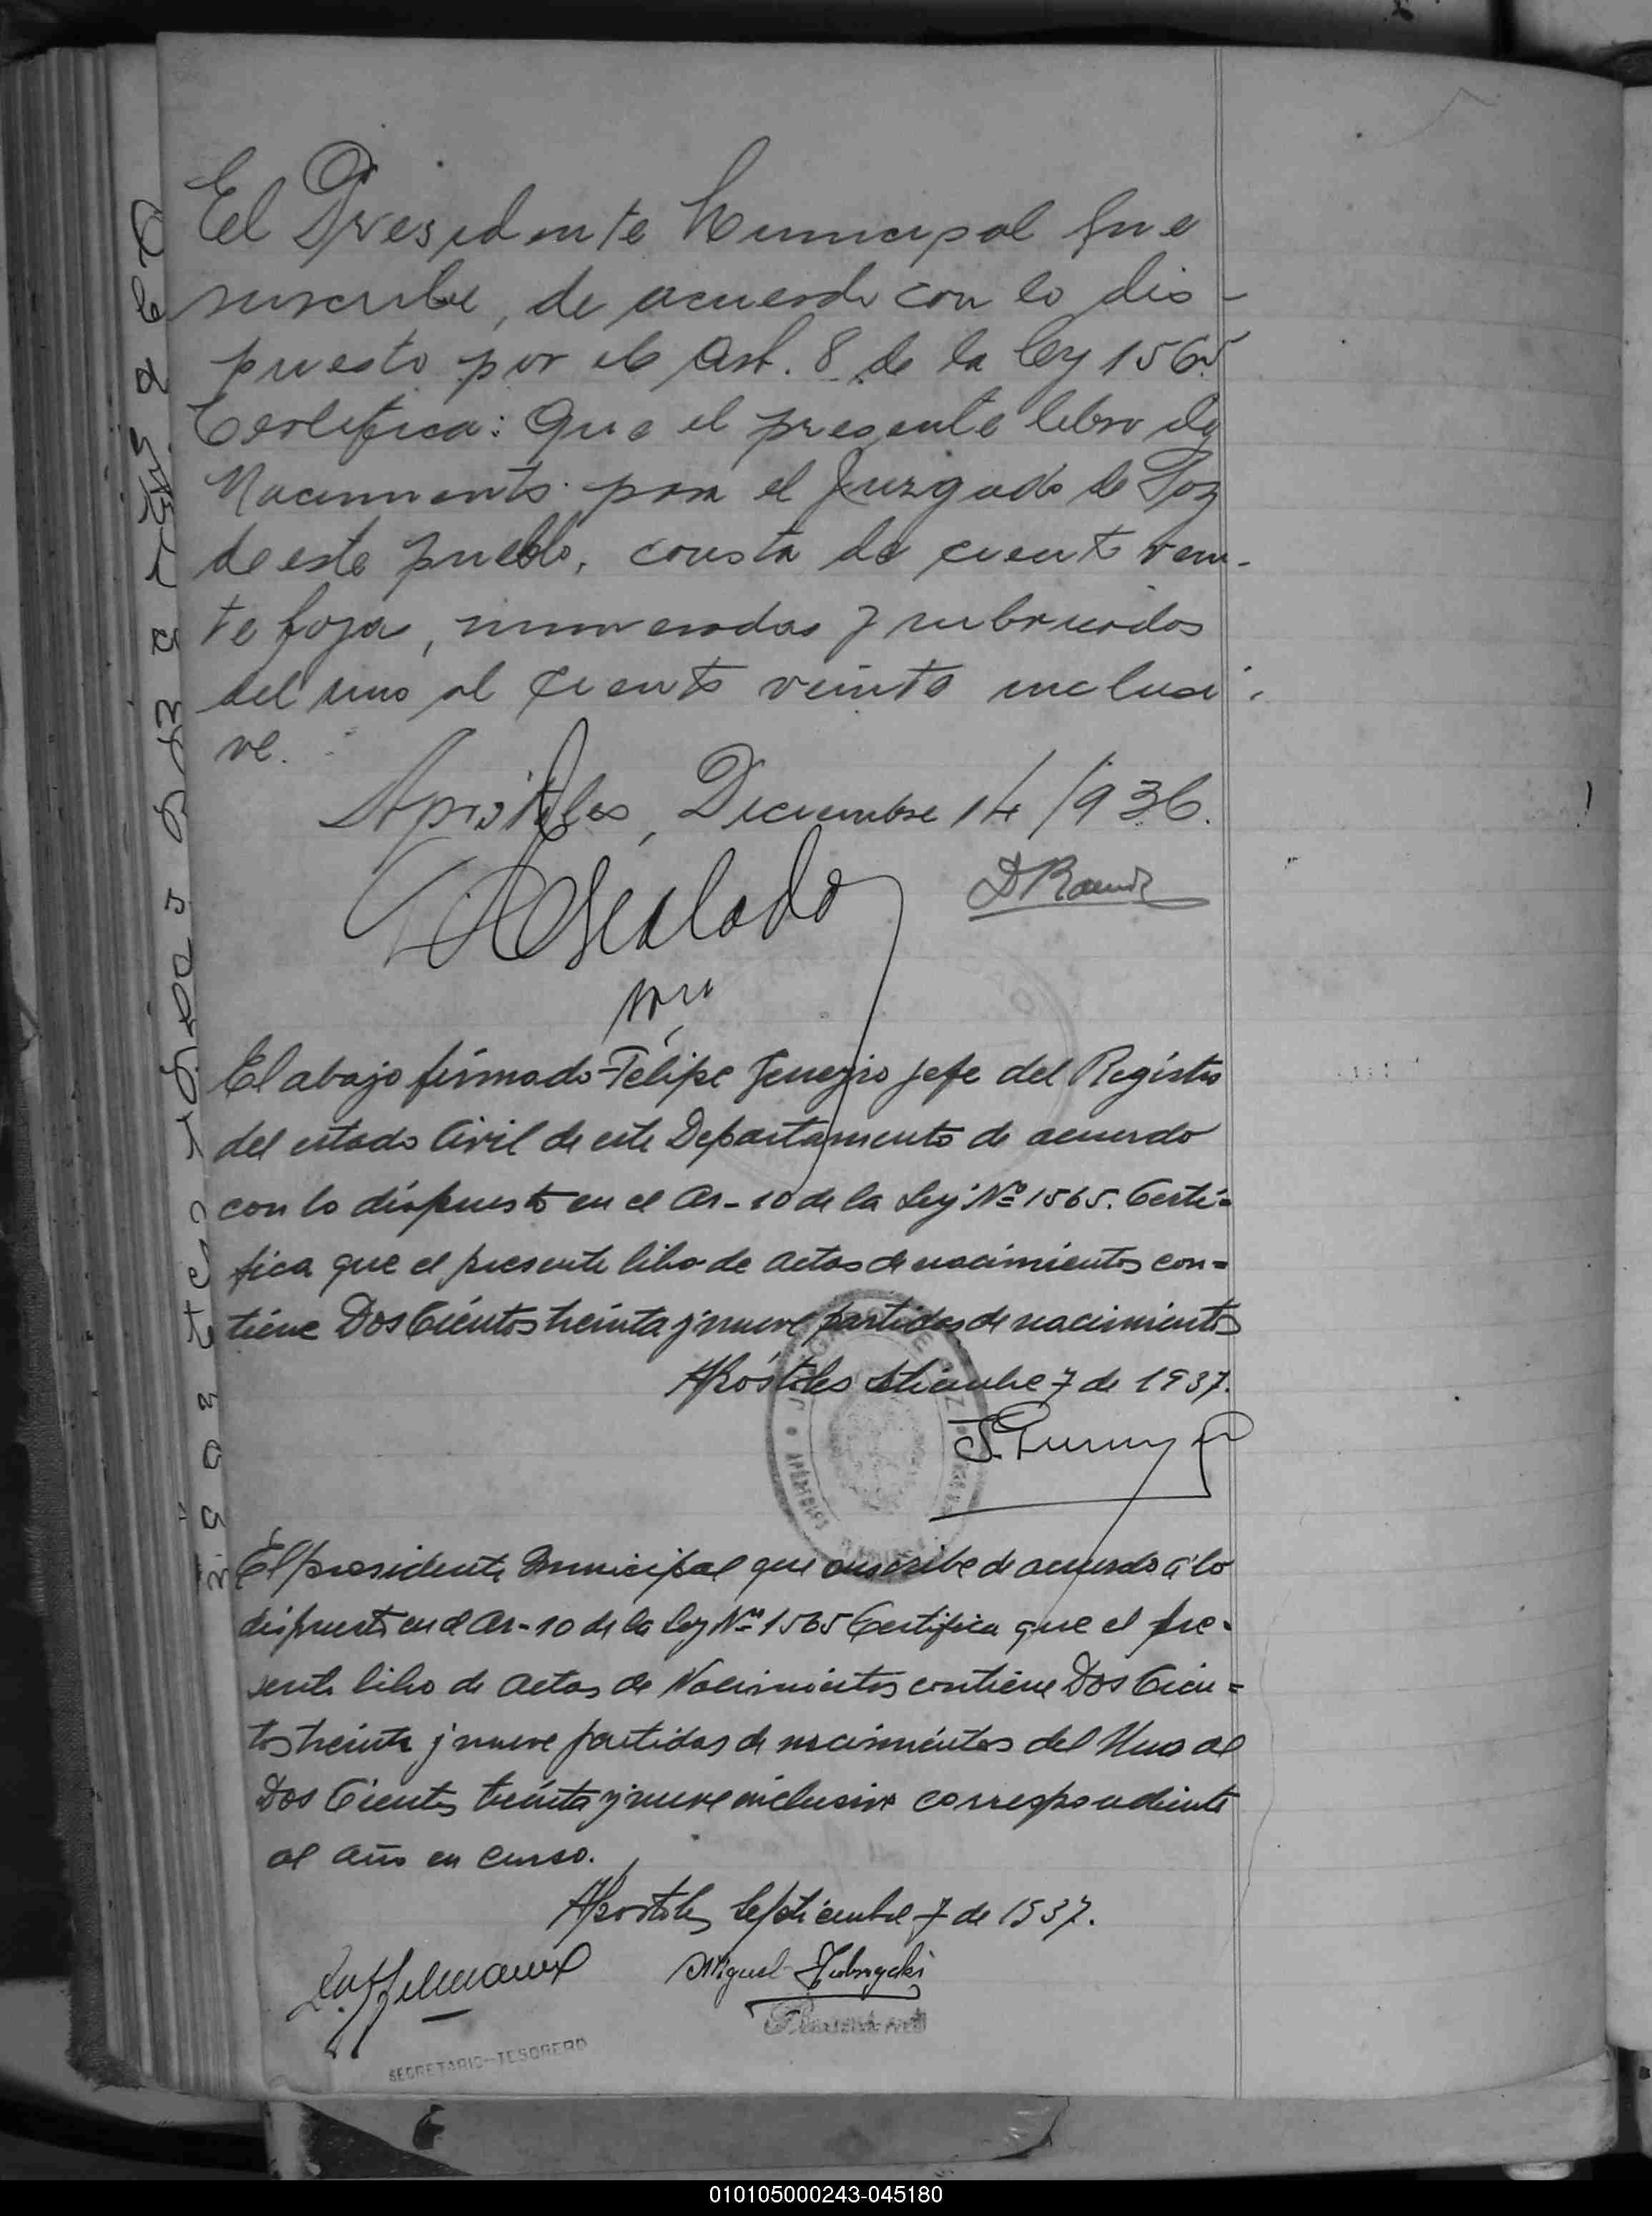 El Presidente Municipal que
suscribe, de acuerdo con lo dis-
puesto por el Art. 8 de la ley 1565
Certifica: Que el presente libro de
Nacimiento para el Juzgado de Paz
de este pueblo, consta de ciento vein-
te fojas, numeradas y rubricadas
del uno al ciento veinte inclusi-
ve.
Apóstoles, Diciembre 14/936.
El abajo firmado Felipe jefe del Registro
del estado Civil de este Departamento de acuerdo
con lo dispuesto en el Ar-10 de la Ley Nº 1565. Certi=
fica que el presente libro de actas de nacimientos con=
tiene Dos Cientos treinta y nueve partidas de nacimientos
Apóstoles 7 de 1937.
El presidente Municipal que suscribe de acuerdo a lo
dispuesto en el Ar-10 de la ley Nº 1565 Certifica que el pre-
sente libro de actas de Nacimientos contiene Dos Cien=
tos treinta y nueve partidas de nacimientos del Uno al
Dos Cientos treinta y nueve inclusive correspondiente
al año en curso.
Apostoles Septiembre 7 de 1937.
Miguel
SECRETARIO-TESORERO
010105000243-045180